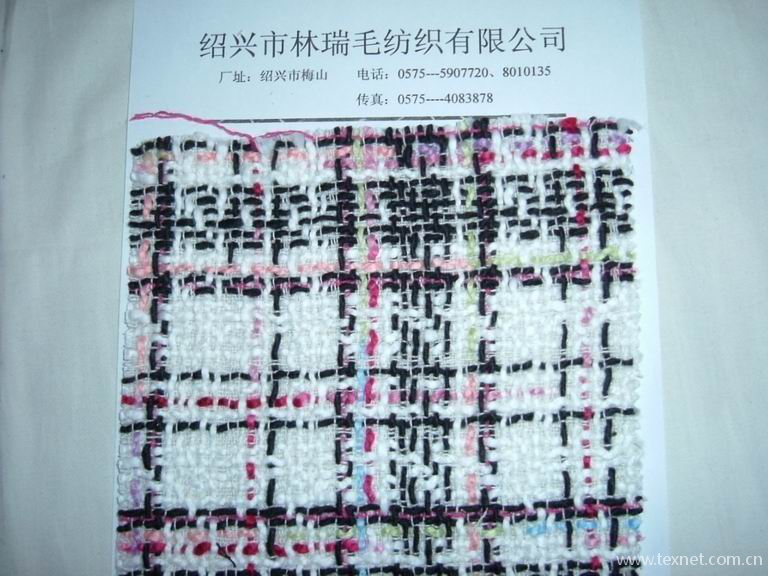 绍兴市林瑞毛纺织有限公司
厂址：绍兴市梅山 电话：0575---5907720、8010135
传真：0575----4083878
www.texnet.com.cn